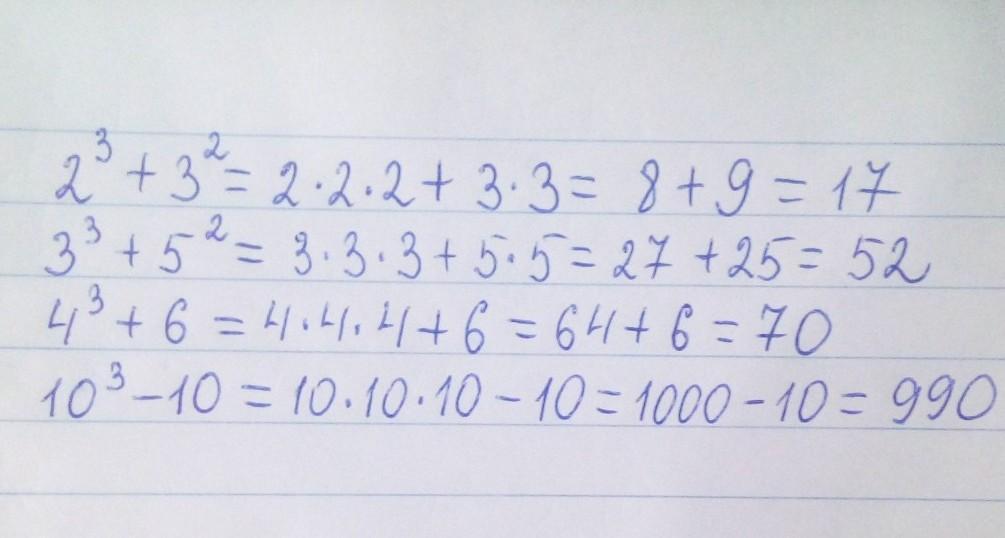 2³ + 3² = 2·2·2 + 3·3 = 8 + 9 = 17
3³ + 5² = 3·3·3 + 5·5 = 27 + 25 = 52
4³ + 6 = 4·4·4 + 6 = 64 + 6 = 70
10³ – 10 = 10·10·10 – 10 = 1000 – 10 = 990